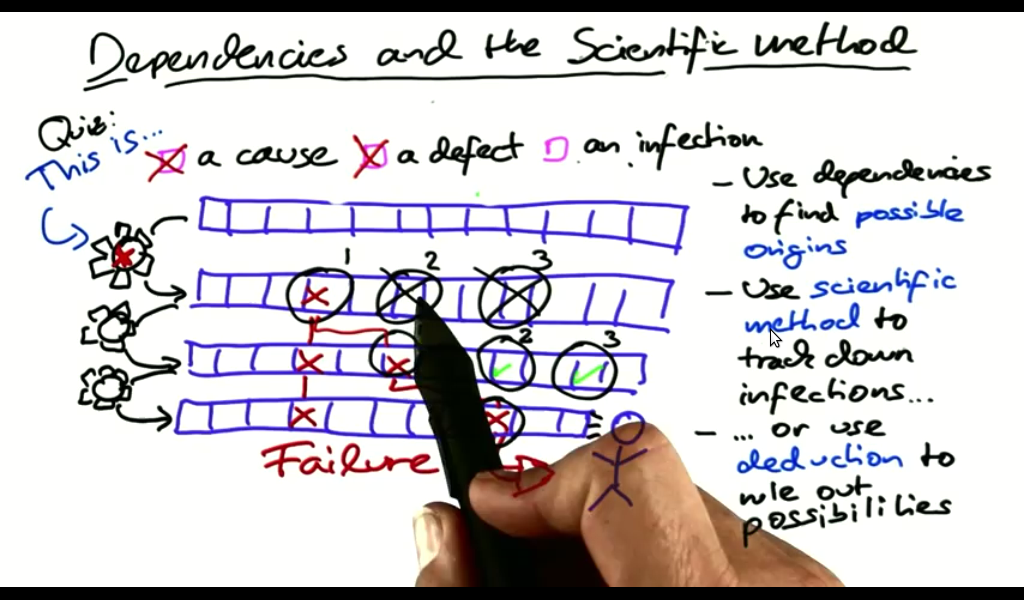 Dependencies and the Scientific method
Quiz:
This is...
a cause a defect an infection
1 2 3
2 3
Failure
- Use dependencies
to find possible
origins
- Use scientific
method to
track down
infections...
- ... or use
deduction to
rule out
possibilities